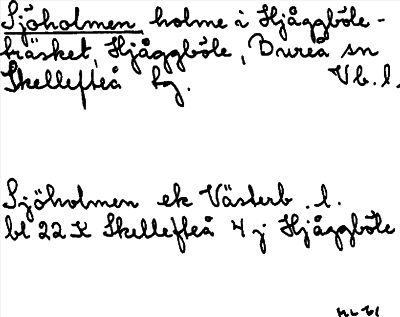 Sjöholmen holme i Hjåggböle-
träsket, Hjåggböle, Bureå sn
Skellefteå kg. Vb. l.
Sjöholmen ek Västerb. l.
bl 22 K Skellefteå 4 j Hjåggböle